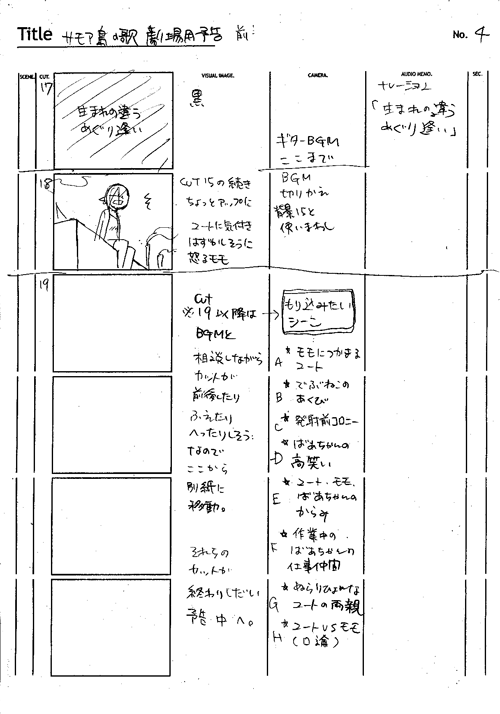 Title サモア島の歌 劇場用予告 前
No. 4
SCENE. CUT. VISUAL IMAGE. CAMERA. AUDIO MEMO. SEC.
17
生まれの違う
めぐり逢い
黒
ギターBGM
ここまで
ナレーション
「生まれの違う
めぐり逢い」
18
CUT 15の続き
ちょっとアップに
ユートに気付き
はずかしそうに
怒るモモ
BGM
切りかえ
背景15と
使いまわし
19
Cut
※19以降は →
BGMと
相談しながら
カットが
前後したり
ふえたり
へったりしそう
なので
ここから
別紙に
移動。
それらの
カットが
終わりしだい
予告 中へ。
もり込みたい
シーン
A ★モモにつかまる
ユート
B ★でぶねこの
あくび
C ★発射前コロニー
D ★ばあちゃんの
高笑い
E ★ユート・モモ、
ばあちゃんの
からみ
F ★作業中の
ばあちゃんの
仕事仲間
G ★ぬらりひょんな
ユートの両親
H ★ユートVSモモ
(口論)